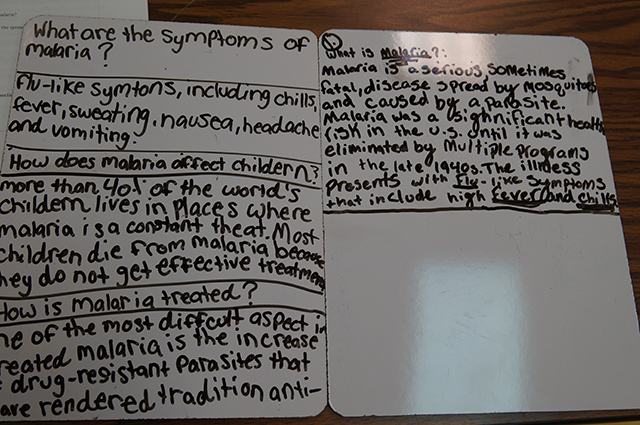 What are the Symptoms of
malaria?
flu-like symtons, including chills,
fever, sweating, nausea, headache
and vomiting.
How does malaria affect childern?
more than 40% of the world's
childern lives in places where
malaria is a constant theat. Most
children die from malaria because
they do not get effective treatment
How is malaria treated?
ne of the most difficult aspect in
reated malaria is the increase
drug-resistant parasites that
are rendered tradition anti-
What is Malaria?:
Malaria is a serious, sometimes
fatal, disease spread by mosquitoes
and caused by a parasite.
Malaria was a significant health
risk in the U.S. until it was
eliminated by multiple programs
in the late 1940s. The illness
presents with flu-like symptoms
that include high fever and chills